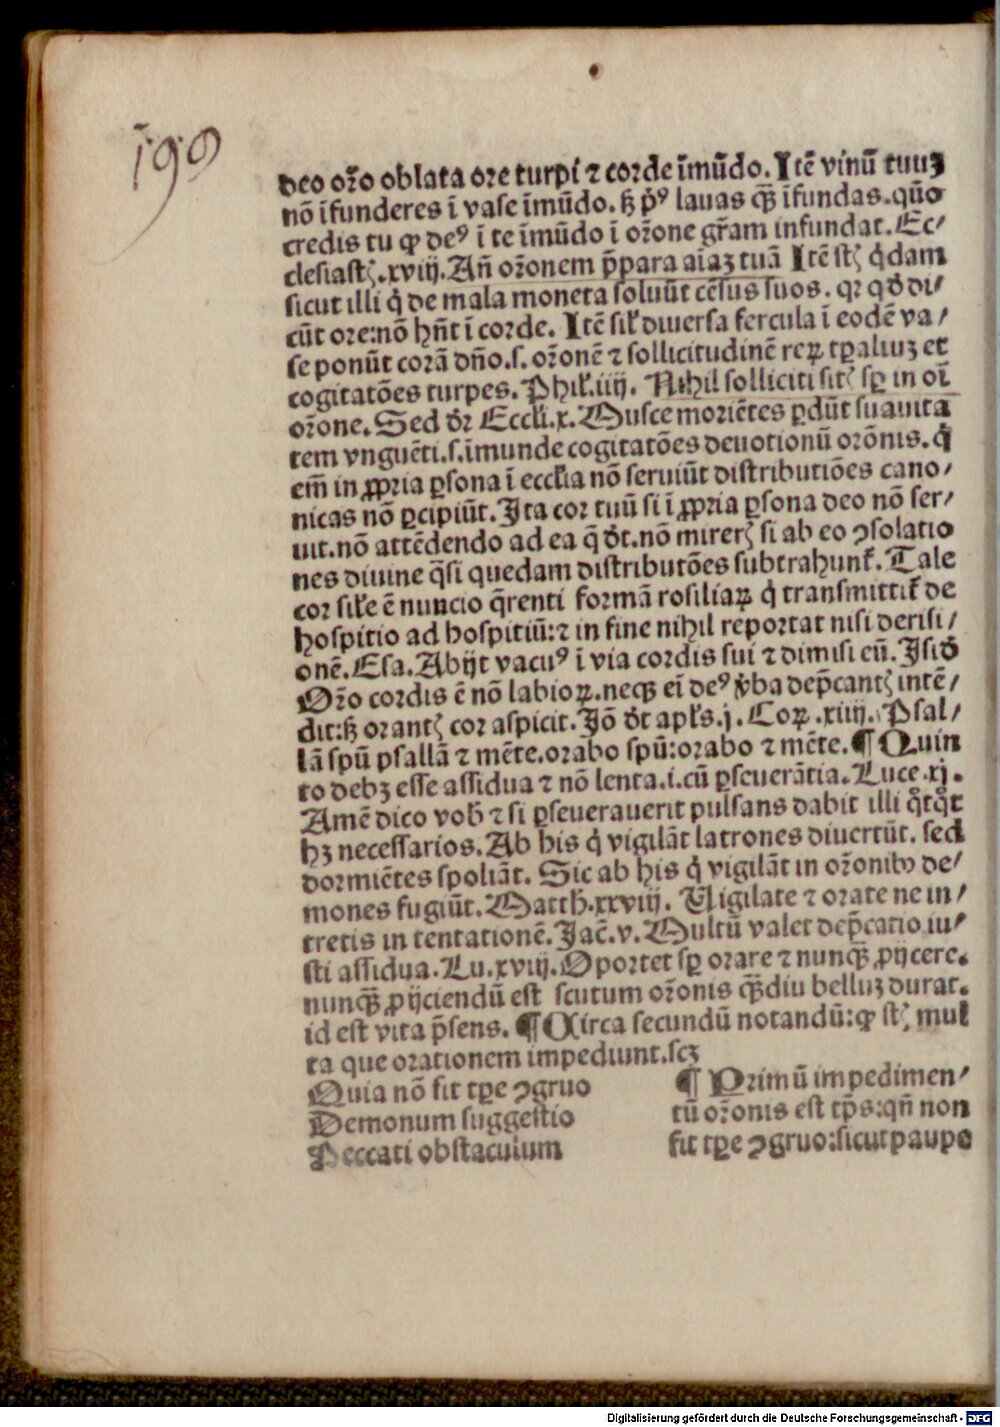 199
deo or̃o oblata ore turpi ⁊ corde ĩmũdo. Itẽ vinũ tuuꝫ
nõ ĩfunderes ĩ vase ĩmũdo. sꝫ pꝰ lauas qꝫ̃ ĩfundas. qũo
credis tu ꝙ deꝰ ĩ te ĩmũdo ĩ or̃one gr̃am infundat. Ec⸗
clesiastꝭ. xviij. Añ or̃onem p̃para aĩaꝫ tuã Itẽ stꝭ q̇dam
sicut illi q̇ de mala moneta soluũt cẽsus suos. qꝛ qð di⸗
cũt ore: nõ hñt ĩ corde. Itẽ sil̃ diuersa fercula ĩ eodẽ va⸗
se ponũt corã dño. s. or̃onẽ ⁊ sollicitudinẽ reꝝ tꝑaliuꝫ et
cogitatões turpes. Phil̃. iiij. Nihil solliciti sitꝭ sꝑ in oĩ
or̃one. Sed ðꝛ Eccl̃i. x. Musce moriẽtes ꝑdũt suauita
tem vnguẽti. s. ĩmunde cogitatões deuotionũ orõnis. q̇
em̃ in ꝓpria ꝑsona ĩ eccl̃ia nõ seruiũt distributiões cano⸗
nicas nõ ꝑcipiũt. Ita cor tuũ si ĩ ꝓpria ꝑsona deo nõ ser⸗
uit. nõ attẽdendo ad ea q̃ ðt. nõ mirerꝭ si ab eo ꝯsolatio
nes diuine q̃si quedam distributões subtrahunt᷑. Tale
cor sil̃e ẽ nuncio q̃renti formã rosiliaꝝ q̇ transmittit᷑ de
hospitio ad hospitiũ: ⁊ in fine nihil reportat nisi derisi⸗
onẽ. Esa. Abijt vacuꝰ ĩ via cordis sui ⁊ dimisi eũ. Isið
Or̃o cordis ẽ nõ labioꝝ. neqꝫ eĩ deꝰ v̾ba dep̃cantꝭ intẽ⸗
dit: sꝫ orantꝭ cor aspicit. Jõ ðt apl̃s. j. Coꝝ. xiiij. Psal⸗
lã spũ psallã ⁊ mẽte. orabo spũ: orabo ⁊ mẽte. ¶ Quin
to debꝫ esse assidua ⁊ nõ lenta. i. cũ ꝑseuerãtia. Luce. xj.
Amẽ dico vob̃ ⁊ si ꝑseuerauerit pulsans dabit illi q̊tq̊t
hꝫ necessarios. Ab his q̇ vigilãt latrones diuertũt. sed
dormiẽtes spoliãt. Sic ab his q̇ vigilãt in or̃onibꝰ de⸗
mones fugiũt. Matth. xxviij. Vigilate ⁊ orate ne in⸗
tretis in tentationẽ. Jac̃. v. Multũ valet dep̃catio iu⸗
sti assidua. Lu. xviij. Oportet sꝑ orare ⁊ nunqꝫ̃ ꝓijcere.
nunqꝫ̃ ꝓijciendũ est scutum or̃onis qꝫ̃diu belluꝫ durat.
id est vita p̃sens. ¶ Circa secundũ notandũ: ꝙ stꝭ mul
ta que orationem impediunt. scꝫ
Quia nõ fit tꝑe ꝯgruo
Demonum suggestio
Peccati obstaculum
¶ Primũ impedimen⸗
tũ or̃onis est tp̃s: qñ non
fit tꝑe ꝯgruo: sicut paupe
Digitalisierung gefördert durch die Deutsche Forschungsgemeinschaft - DFG